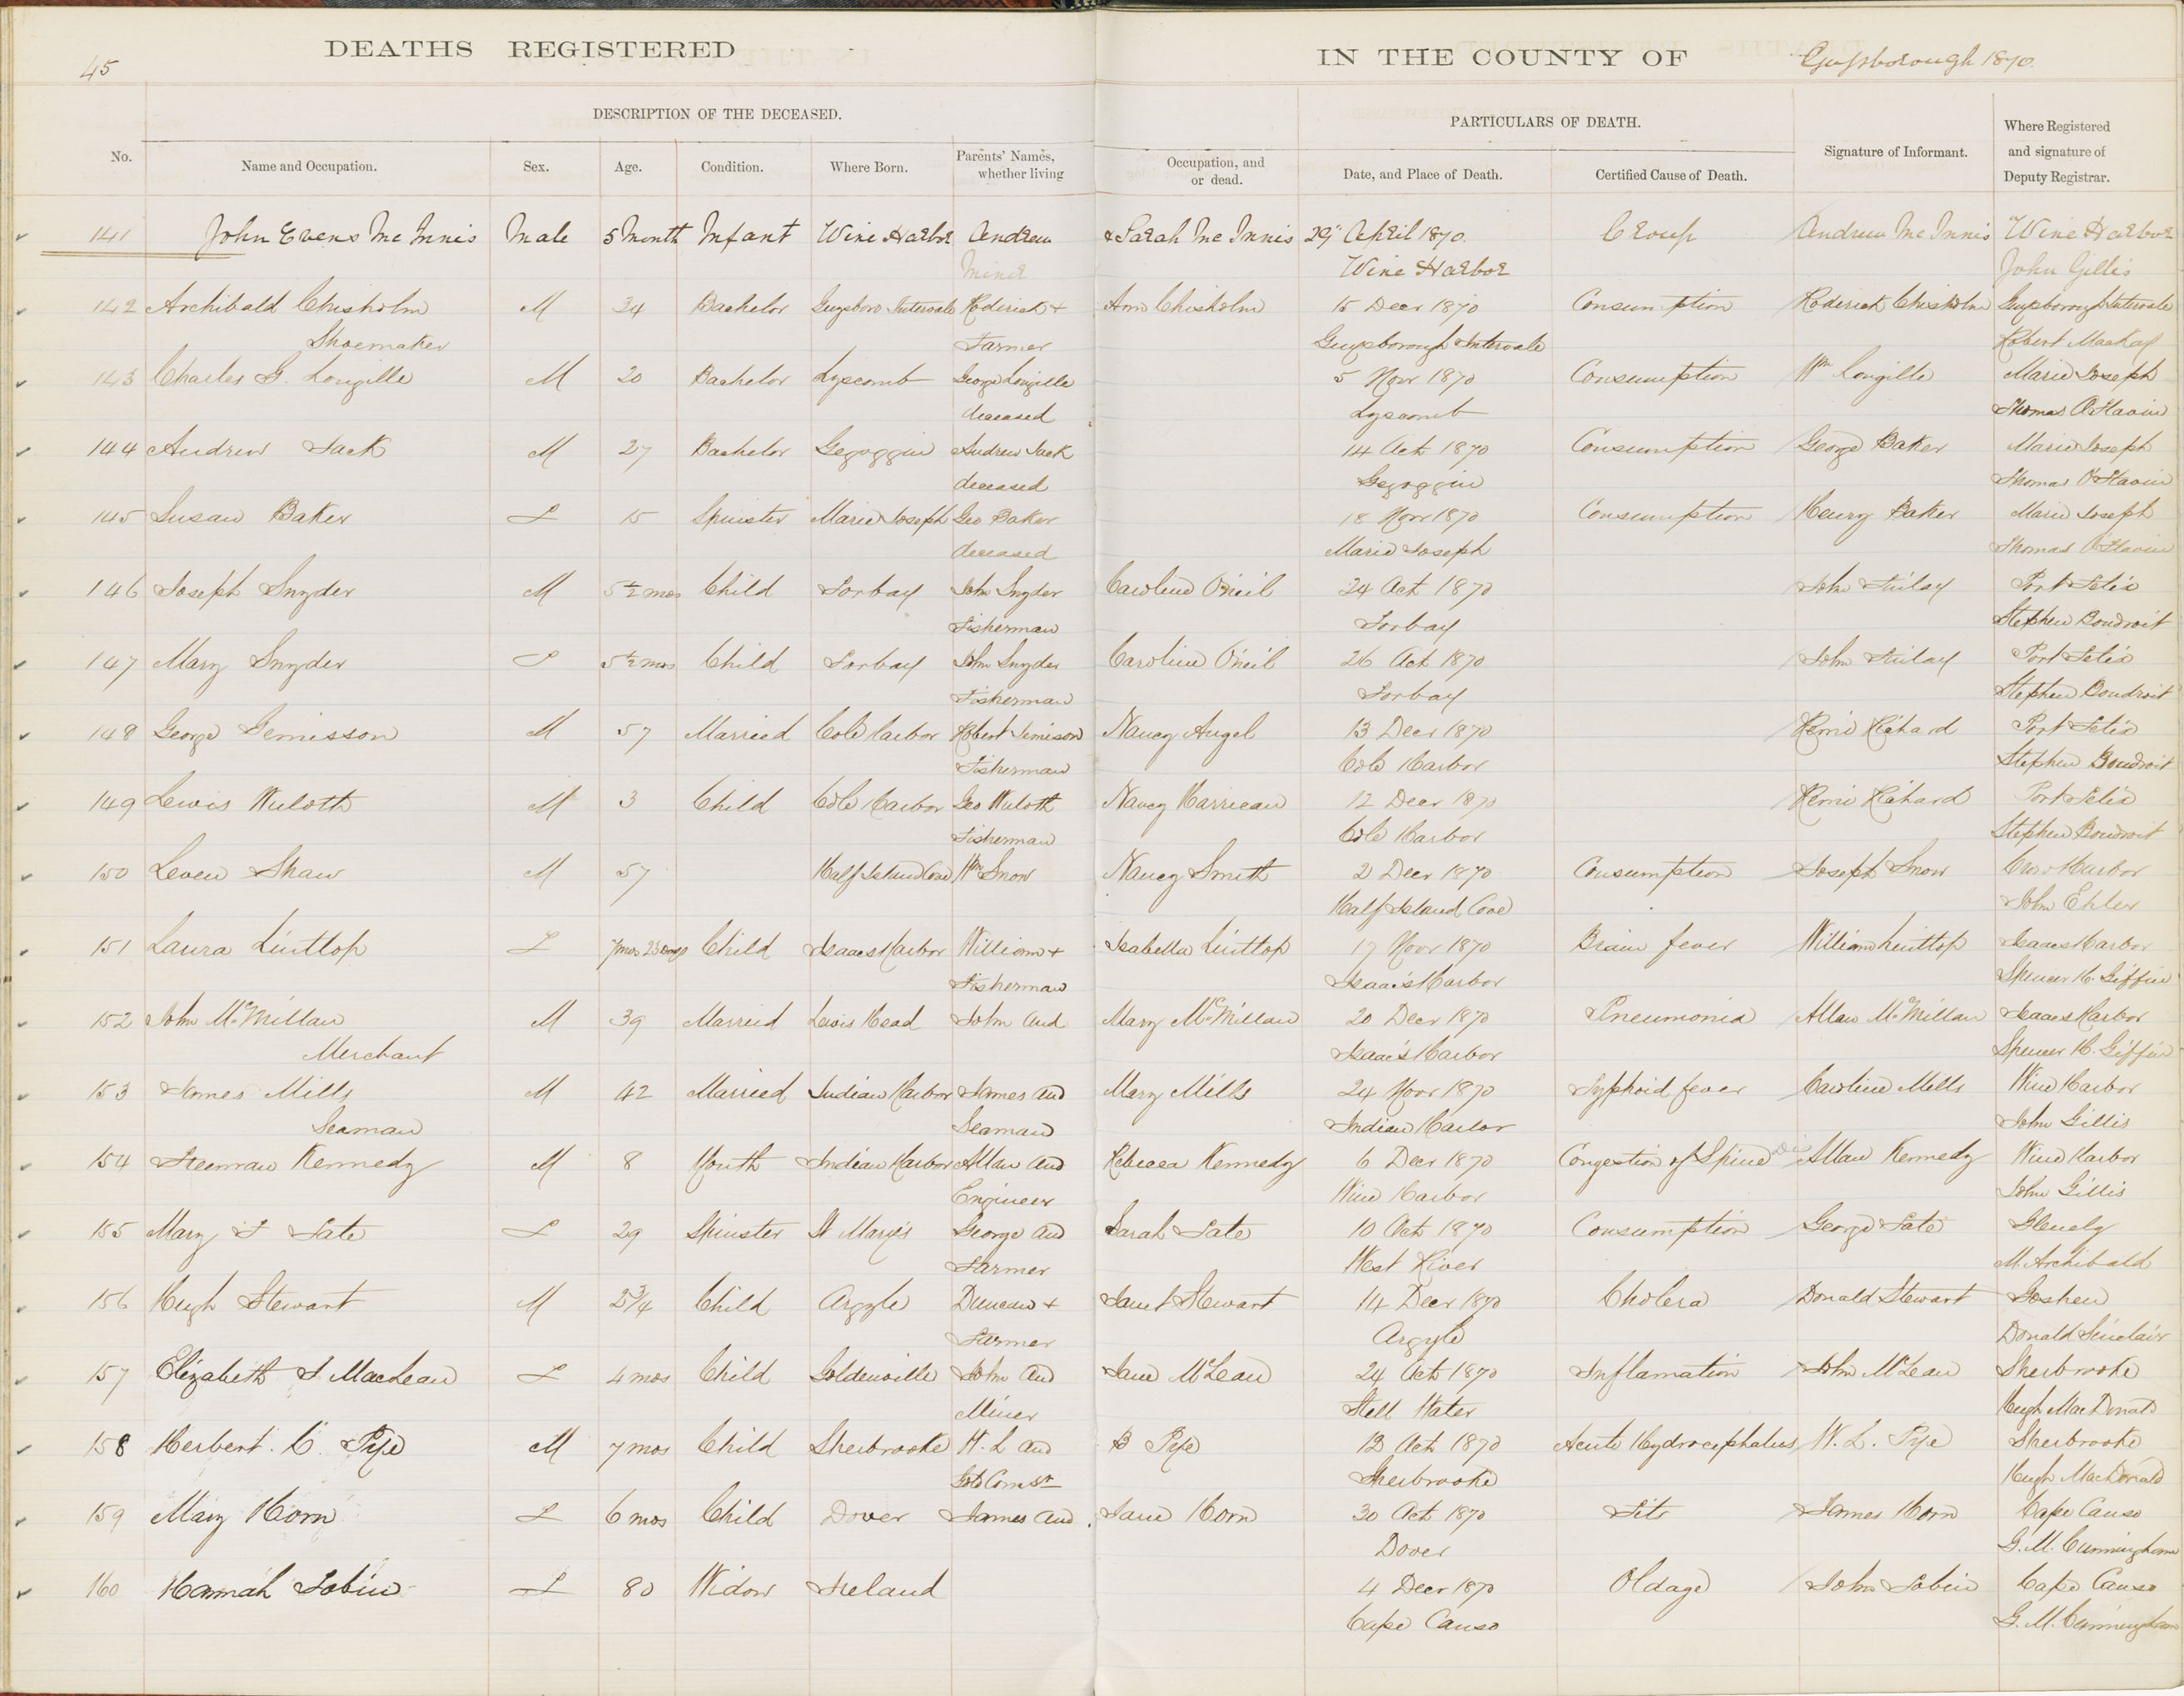 45
DEATHS REGISTERED IN THE COUNTY OF Guysborough 1870.
DESCRIPTION OF THE DECEASED. PARTICULARS OF DEATH.
No. Name and Occupation. Sex. Age. Condition. Where Born. Parents' Names, whether living Occupation, and or dead. Date, and Place of Death. Certified Cause of Death. Signature of Informant. Where Registered and signature of Deputy Registrar.
141 John Evens McInnis Male 5 Month Infant Wine Harbor Andrew & Sarah McInnis 29" April 1870. Croup Andrew McInnis Wine Harbor
Miner Wine Harbor John Gillis
142 Archibald Chisholm M 34 Bachelor Guysboro Intervale Roderick + Ann Chisholm 15 Decr 1870 Consumption Roderick Chisholm Guysborough Intervale
Shoemaker Farmer Guysborough Intervale Robert MacKay
143 Charles G. Longille M 20 Bachelor Lyscomb George Longille 5 Novr 1870 Consumption Wm Longille Marie Joseph
deceased Lyscomb Thomas
144 Andrew Jack M 27 Bachelor Gegoggin Andrew Jack 14 Oct 1870 Consumption George Baker Marie Joseph
deceased Gegoggin Thomas
145 Susan Baker F 15 Spinster Marie Joseph Geo Baker 18 Novr 1870 Consumption Henry Baker Marie Joseph
deceased Marie Joseph Thomas
146 Joseph Snyder M 5½ mos Child Torbay John Snyder Caroline O'neil 24 Oct 1870 John Finlay Port Felix
Fisherman Torbay Stephen Boudroit
147 Mary Snyder F 5½ mos Child Torbay John Snyder Caroline O'neil 26 Oct 1870 John Finlay Port Felix
Fisherman Torbay Stephen Boudroit
148 George Gemisson M 57 Married Cole Harbor Robert Jimison Nancy Angel 13 Decr 1870 Remi Richard Port Felix
Fisherman Cole Harbor Stephen Boudroit
149 Lewis Wuloth M 3 Child Cole Harbor Geo Wuloth Nancy Harrieau 12 Decr 1870 Remi Richard Port Felix
Fisherman Cole Harbor Stephen Boudroit
150 Leven Shaw M 57 Half Island Cove Wm Snow Nancy Smith 2 Decr 1870 Consumption Joseph Snow Crow Harbor
Half Island Cove John Ehler
151 Laura Linttop F 7 mos 23 days Child Isaacs Harbor William + Isabella Linttop 17 Novr 1870 Brain fever William Linttop Isaacs Harbor
Fisherman Isaac's Harbor Spencer H. Giffin
152 John McMillan M 39 Married Lewis Head John and Mary McMillan 20 Decr 1870 Pneumonia Allan McMillan Isaacs Harbor
Merchant Isaac's Harbor Spencer H. Giffin
153 James Mills M 42 Married Indian Harbor James and Mary Mills 24 Novr 1870 Typhoid fever Caroline Mills Wine Harbor
Seaman Seaman Indian Harbor John Gillis
154 Freeman Kennedy M 8 Youth Indian Harbor Allan and Rebecca Kennedy 6 Decr 1870 Congestion of Spine Allan Kennedy Wine Harbor
Engineer Wine Harbor John Gillis
155 Mary J Tate F 29 Spinster St Mary's George and Sarah Tate 10 Oct 1870 Consumption George Tate Glenelg
Farmer West River M. Archibald
156 Hugh Stewart M 2¾ Child Argyle Duncan + Janet Stewart 14 Decr 1870 Cholera Donald Stewart Goshen
Farmer Argyle Donald Sinclair
157 Elizabeth J MacLean F 4 mos Child Goldenville John and Jane McLean 24 Oct 1870 Inflamation John McLean Sherbrooke
Miner Still Water Hugh MacDonald
158 Herbert C. Pye M 7 mos Child Sherbrooke W. L and B Pye 12 Oct 1870 Acute Hydrocephalus W. L. Pye Sherbrooke
Sherbrooke Hugh MacDonald
159 Mary Horn F 6 mos Child Dover James and Jane Horn 30 Oct 1870 Fits James Horn Cape Canso
Dover G. M. Cunningham
160 Hannah Tobin F 80 Widow Ireland 4 Decr 1870 Oldage John Tobin Cape Canso
Cape Canso G. M. Cunningham